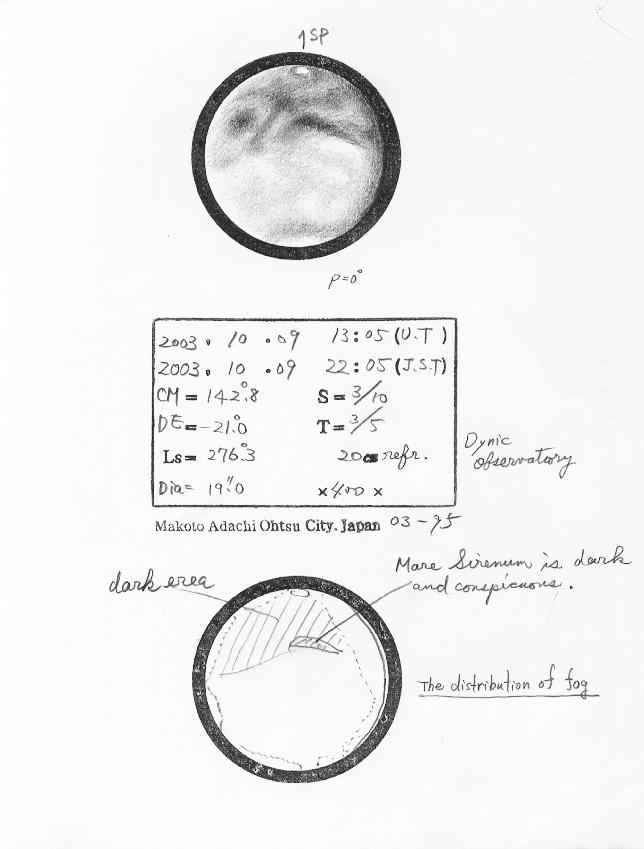 ↑SP
P=0°
2003. 10 .09 13:05 (U.T)
2003. 10 .09 22:05 (J.S.T)
CM = 142°.8 S = 3/10
DE = -21°.0 T = 3/5
Ls = 276°.3 20cm refr.
Dia= 19".0 ×400 ×
Dynic
observatory
Makoto Adachi Ohtsu City. Japan 03-95
Mare Sirenum is dark
and conspicuous.
dark erea
The distribution of fog